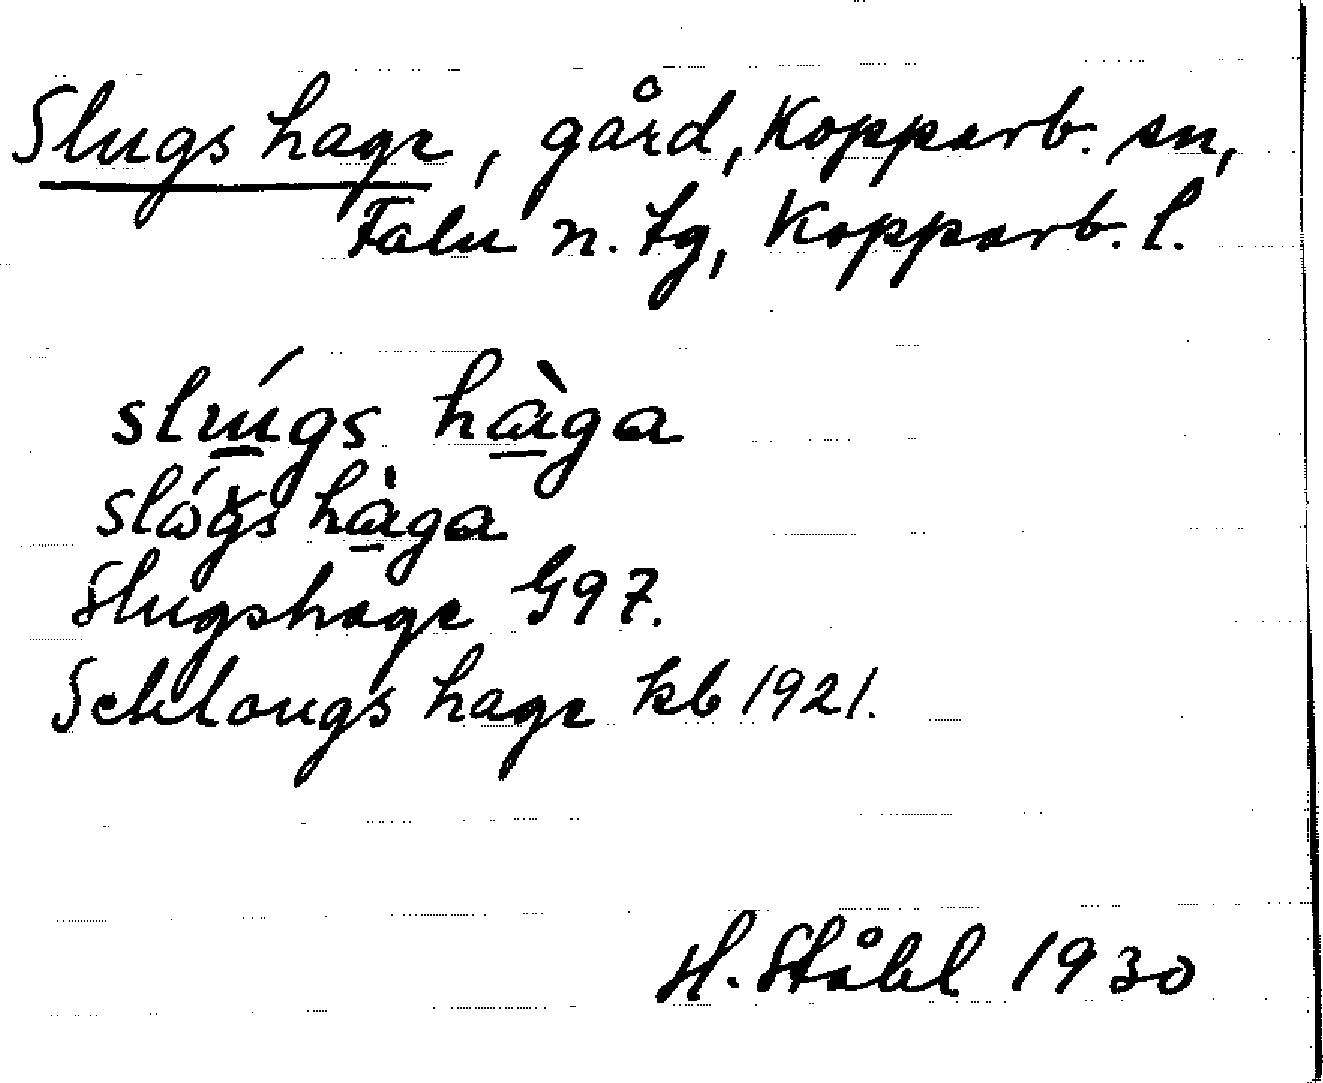 Slugs hage, gård, Kopparb. sn,
Falu n. tg, Kopparb. l.
slú̲gs hà̲ga
slǿgs hà̲ga
Slugshage G97.
Schlougs hage kb 1921.
H. Ståhl 1930